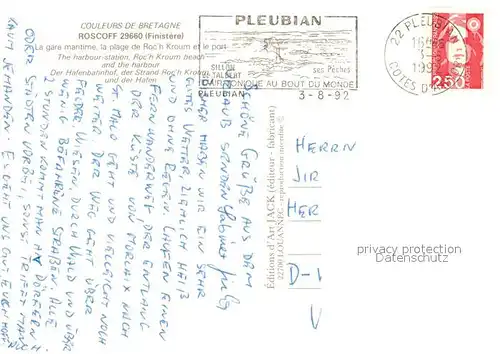 COULEURS DE BRETAGNE
ROSCOFF 29660 (Finistère)
La gare maritime, la plage de Roc'h Kroum et le port
The harbour-station, Roc'h Kroum beach
and the harbour
Der Hafenbahnhof, der Strand Roc'h Kroum
und der Hafen
PLEUBIAN
SILLON
de TALBERT
ses Pêches
AU BOUT DU MONDE
PLEUBIAN
3-8-92
22 PLEUBIAN
2,50
Editions d'Art JACK (éditeur - fabricant)
22700 LOUANNEC reproduction interdite ©
SCHÖNE GRÜßE AUS DEM
URLAUB SENDEN
HABEN WIR EIN SEHR
GUTES WETTER ZIEMLICH HEIß
UND OHNE REGEN. LAUFEN EINEN
FERNWANDERWEG DER ENTLANG
DER KÜSTE VON MORLAIX NACH
ST MALO GEHT UND VIELLEICHT NOCH
WEITER. DER WEG GEHT ÜBER
FELDER WIESEN, DURCH WALD UND ÜBER
WENIG BEFAHRENE STRAßEN. ALLE
2 STUNDEN KOMMT MAN AN DÖRFERN
ODER STÄDTEN VORBEI, SONST TRIFFT MAN
KAUM JEMANDEN. ES GEHT UNS GUT. EUCH HOFF.
HERRN
HER
D-
privacy protection
(Datenschutz)